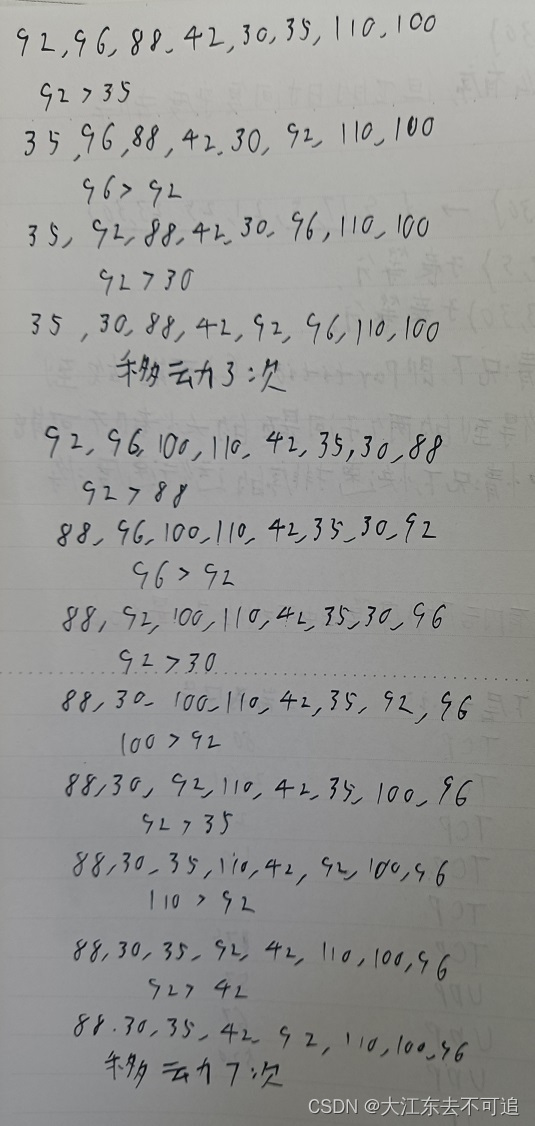 92,96,88,42,30,35,110,100
92>35
35,96,88,42,30,92,110,100
96>92
35,92,88,42,30,96,110,100
92>30
35,30,88,42,92,96,110,100
移动3次
92,96,100,110,42,35,30,88
92>88
88,96,100,110,42,35,30,92
96>92
88,92,100,110,42,35,30,96
92>30
88,30,100,110,42,35,92,96
100>92
88,30,92,110,42,35,100,96
92>35
88,30,35,110,42,92,100,96
110>92
88,30,35,92,42,110,100,96
92>42
88.30,35,42,92,110,100,96
移动7次
CSDN @大江东去不可追